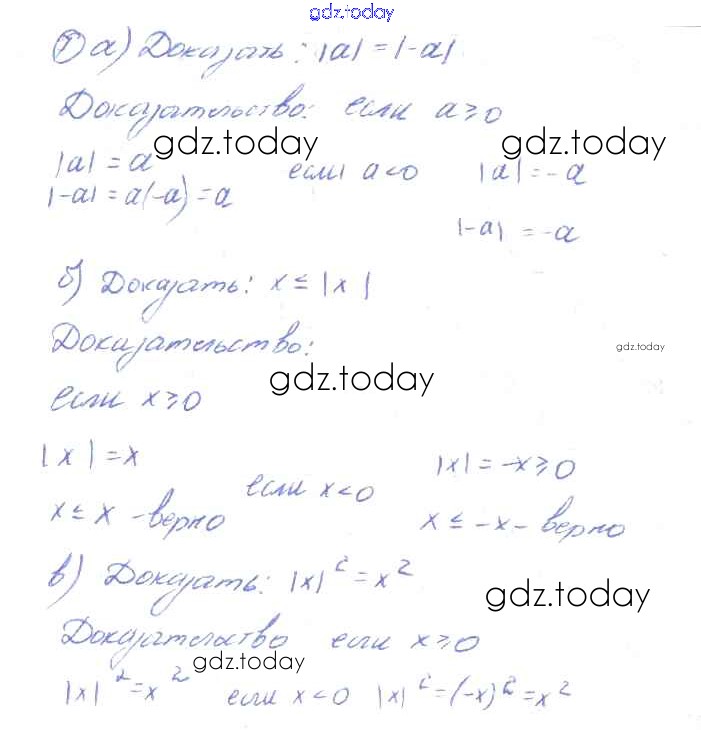 gdz.today
① а) Доказать: |a| = |-a|
Доказательство: если a ⩾ 0
gdz.today gdz.today
|a| = a если a < 0 |a| = -a
|-a| = a(-a) = a
|-a| = -a
б) Доказать: x ≤ |x|
Доказательство:
gdz.today
gdz.today
если x ⩾ 0
|x| = x |x| = -x ⩾ 0
если x < 0
x ≤ x - верно x ≤ -x - верно
в) Доказать: |x|² = x²
gdz.today
Доказательство если x ⩾ 0
gdz.today
|x|² = x² если x < 0 |x|² = (-x)² = x²